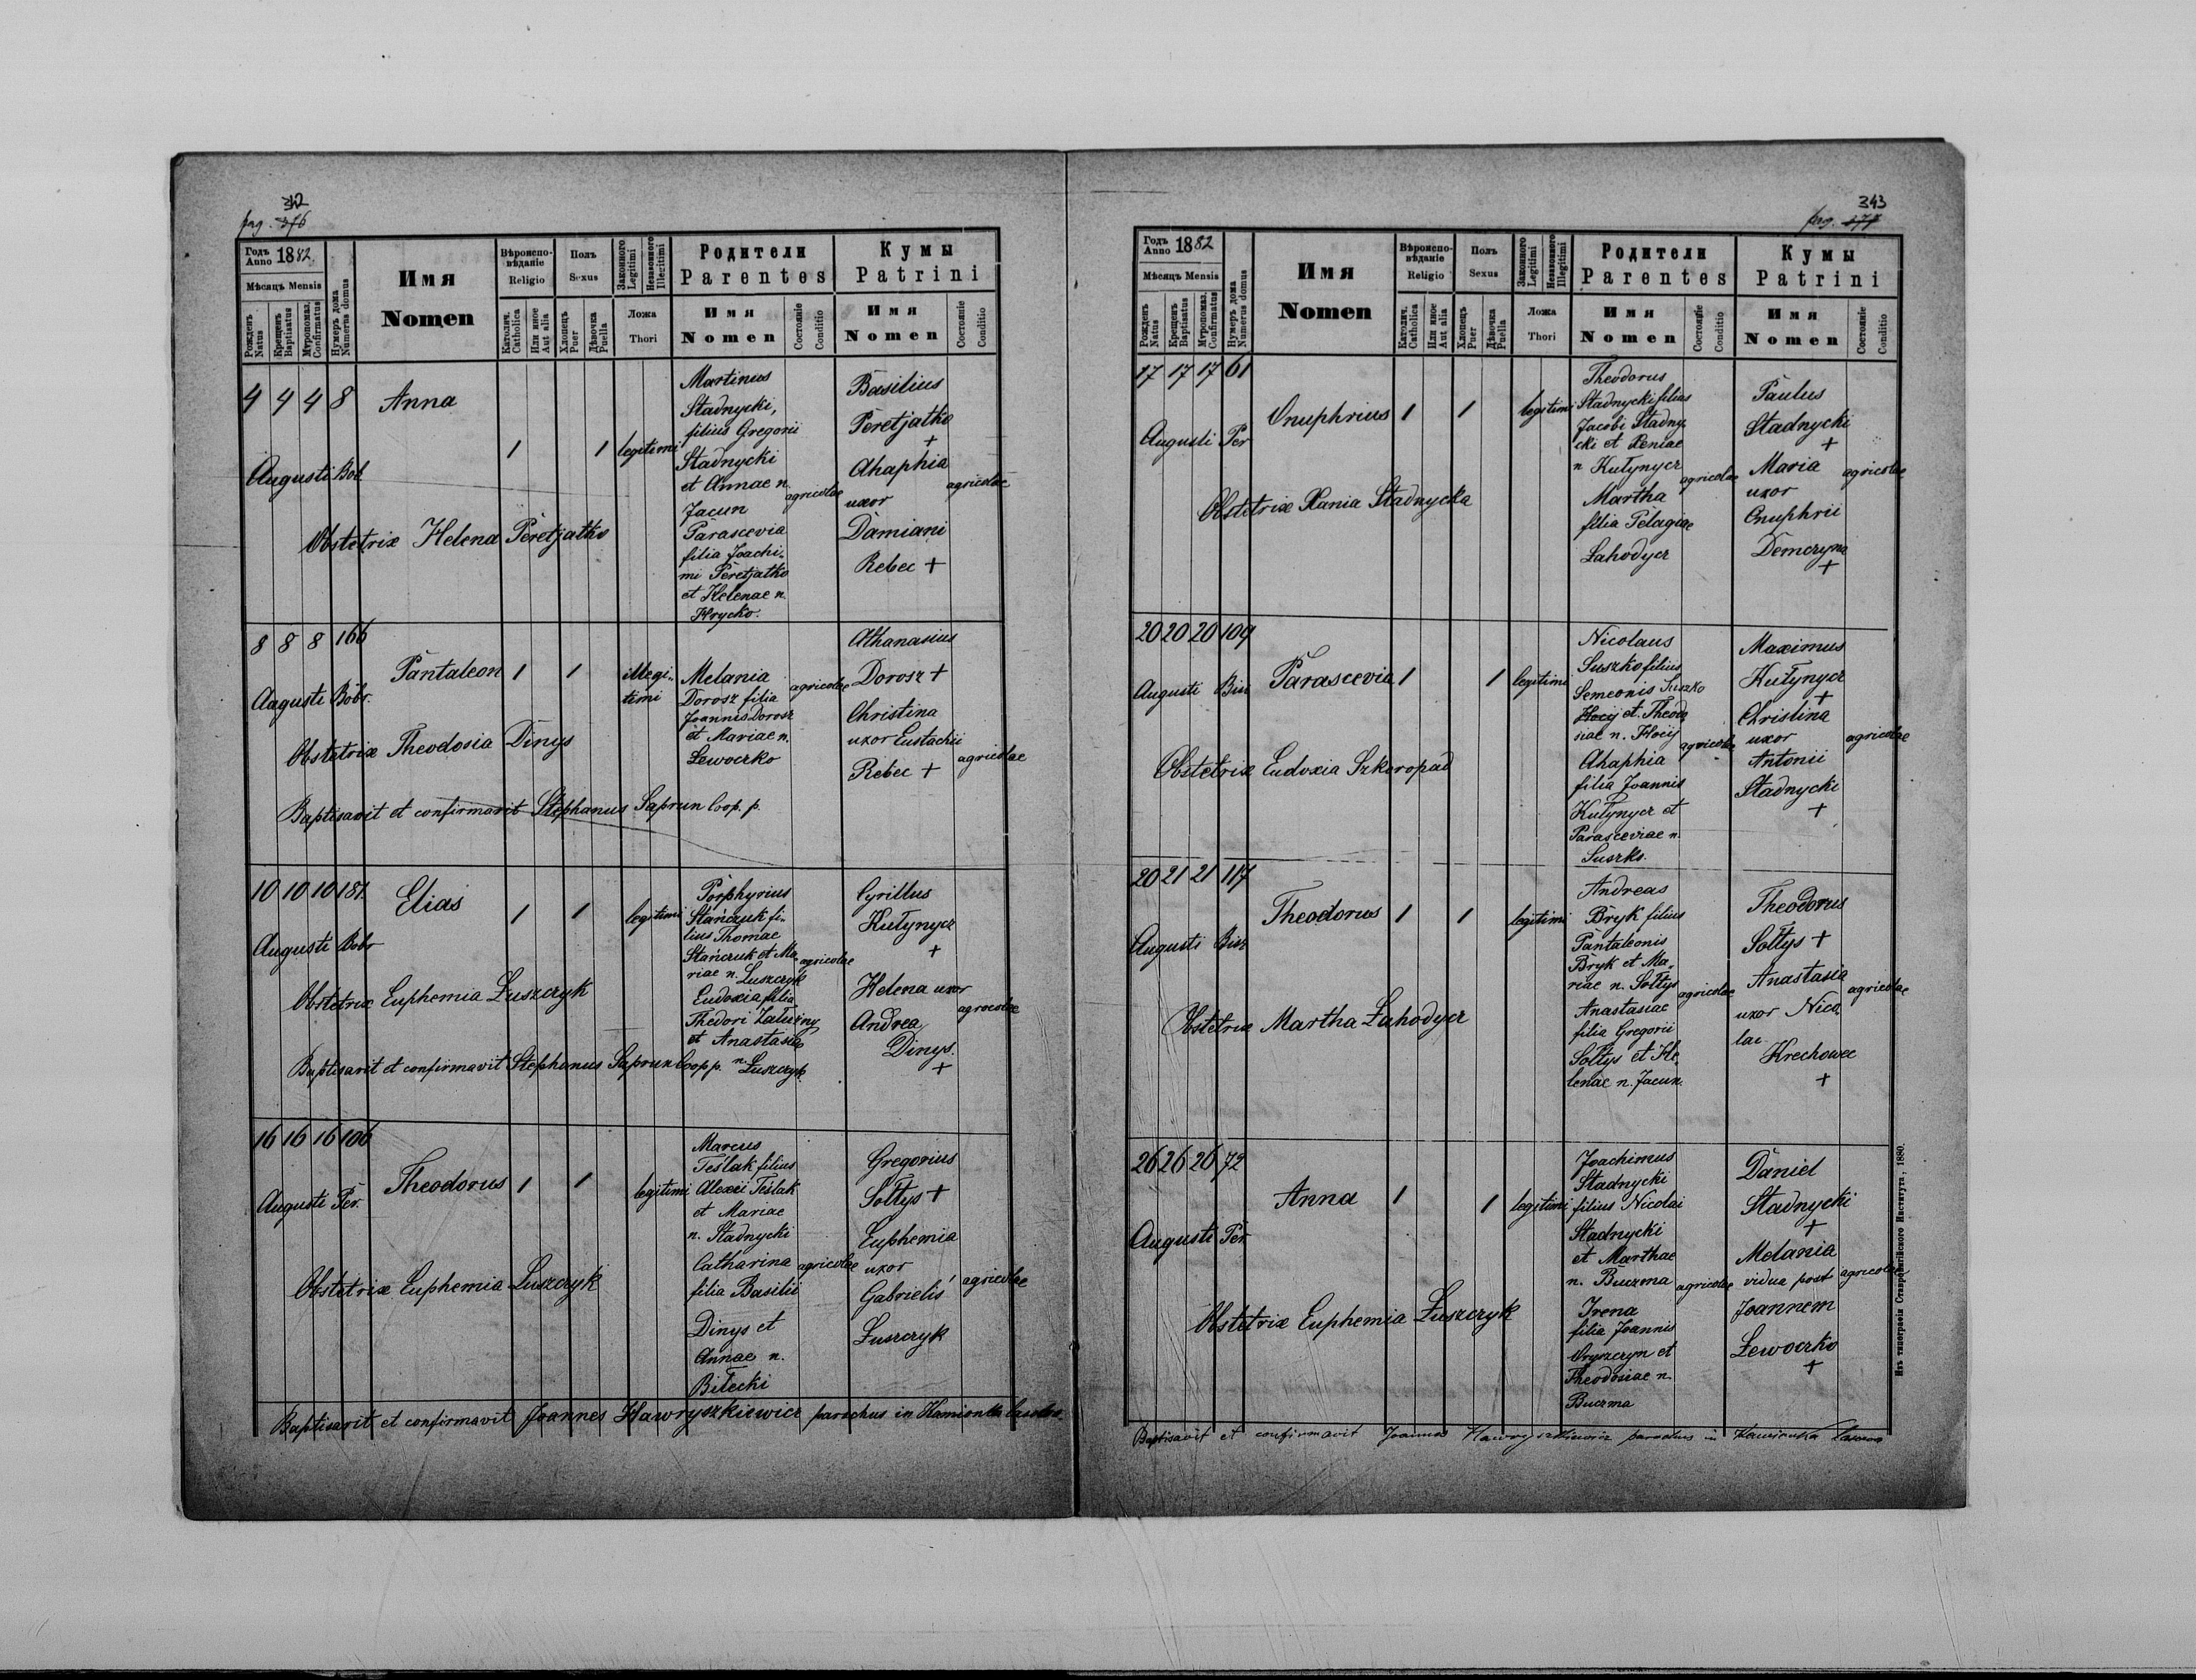 342
pag. 376
Годъ Anno 1882
Мѣсяцъ Mensis
Рожденъ Natus
Крещенъ Baptisatus
Мѵропомаз. Confirmatus
Нумеръ дома Numerus domus
Имя
Nomen
Вѣроиспо-
вѣданіе
Religio
Католич. Catholica
Или иное Aut alia
Полъ
Sexus
Хлопецъ Puer
Дѣвочка Puella
Законного Legitimi
Незаконного Illegitimi
Ложа
Thori
Родители
Parentes
Имя
Nomen
Состояніе Conditio
Кумы
Patrini
Имя
Nomen
Состояніе Conditio
4 4 4 8
Augusti Bob
Anna
1 1 legitimi
Martinus
Stadnycki,
filius Gregorii
Stadnycki
et Annae n.
Jacun
Parascevia
filia Joachi-
mi Peretjatko
et Helenae n.
Hrycko.
agricolae
Basilius
Peretjatko
+
Ahaphia
uxor
Damiani
Rebec +
agricolae
Obstetrix Helena Peretjatko
8 8 8 166
Augusti Bobr.
Pantaleon 1 1
illegi-
timi
Melania
Dorosz filia
Joannis Dorosz
et Mariae n.
Lewoczko
agricolae
Athanasius
Dorosz +
Christina
uxor Eustachii
Rebec +
agricolae
Obstetrix Theodosia Dinys
Baptisavit et confirmavit Stephanus Saprun Coop. p.
10 10 10 181.
Augusti Bobr
Elias
1 1 legitimi
Porphyrius
Stańczuk fi-
lius Thomae
Stańczuk et Ma-
riae n. Łuszczyk
Eudoxia filia
Thedori Załużny
et Anastasiae
n. Łuszczyk
agricolae
Cyrillus
Kułynycz
+
Helena uxor
Andrea
Dinys.
+
agrocolae
Obstetrix Euphemia Łuszczyk
Baptisavit et confirmavit Stephanus Saprun Coop p.
16 16 16 106
Augusti Per.
Theodorus 1 1 legitimi
Marcus
Teślak filius
Alexii Teślak
et Mariae
n. Stadnycki
Catharina
filia Basilii
Dinys et
Annae n.
Biłecki
agricolae
Gregorius
Sołtys +
Euphemia
uxor
Gabrielis
Łuszczyk
agricolae
Obstetrix Euphemia Łuszczyk
Baptisavit et confirmavit Joannes Hawryszkiewicz parochus in Kamionka
343
pag. 377
Годъ Anno 1882
Мѣсяцъ Mensis
Рожденъ Natus
Крещенъ Baptisatus
Мѵропомаз. Confirmatus
Нумеръ дома Numerus domus
Имя
Nomen
Вѣроиспо-
вѣданіе
Religio
Католич. Catholica
Или иное Aut alia
Полъ
Sexus
Хлопецъ Puer
Дѣвочка Puella
Законного Legitimi
Незаконного Illegitimi
Ложа
Thori
Родители
Parentes
Имя
Nomen
Состояніе Conditio
Кумы
Patrini
Имя
Nomen
Состояніе Conditio
17 17 17 61
Augusti Per
Onuphrius 1 1 legitimi
Theodorus
Stadnycki filius
Jacobi Stadny-
cki et Xeniae
n Kułynycz
Martha
filia Pelagiae
Lahodycz
agricolae
Paulus
Stadnycki
+
Maria
uxor
Onuphrii
Demczyna
+
agricolae
Obstetrix Xania Stadnycka
20 20 20 109
Augusti
Parascevia 1 1 legitimi
Nicolaus
Suszko filius
Semeonis Suszko
Hocij et Theodo
siae n. Hocij
Ahaphia
filia Joannis
Kułynycz et
Parasceviae n.
Suszko.
agricolae
Maximus
Kułynycz
+
Christina
uxor
Antonii
Stadnycki
+
agricolae
Obstetrix Eudoxia Szkoropad
20 21 21 117
Augusti
Theodorus 1 1 legitimi
Andreas
Bryk filius
Pantaleonis
Bryk et Ma-
riae n. Sołtys
Anastasiae
filia Gregorii
Sołtys et He-
lenae n. Jacun.
agricolae
Theodorus
Sołtys +
Anastasia
uxor Nico
lai
Krechowec
+
agricolae
Obstetrix Martha Łahodycz
26 26 26 72
Augusti Per
Anna 1 1 legitimi
Joachimus
Stadnycki
filius Nicolai
Stadnycki
et Marthae
n. Buczma
Irena
filia Joannis
Oryszczyn et
Theodosiae n.
Buczma
agricolae
Daniel
Stadnycki
+
Melania
vidua post
Joannem
Łewoczko
+
agricolae
Obstetrix Euphemia Łuszczyk
Baptisavit et confirmavit Joannes Hawryszkiewicz parochus in Kamionka
Изъ типографіи Ставропигійского Института, 1880.